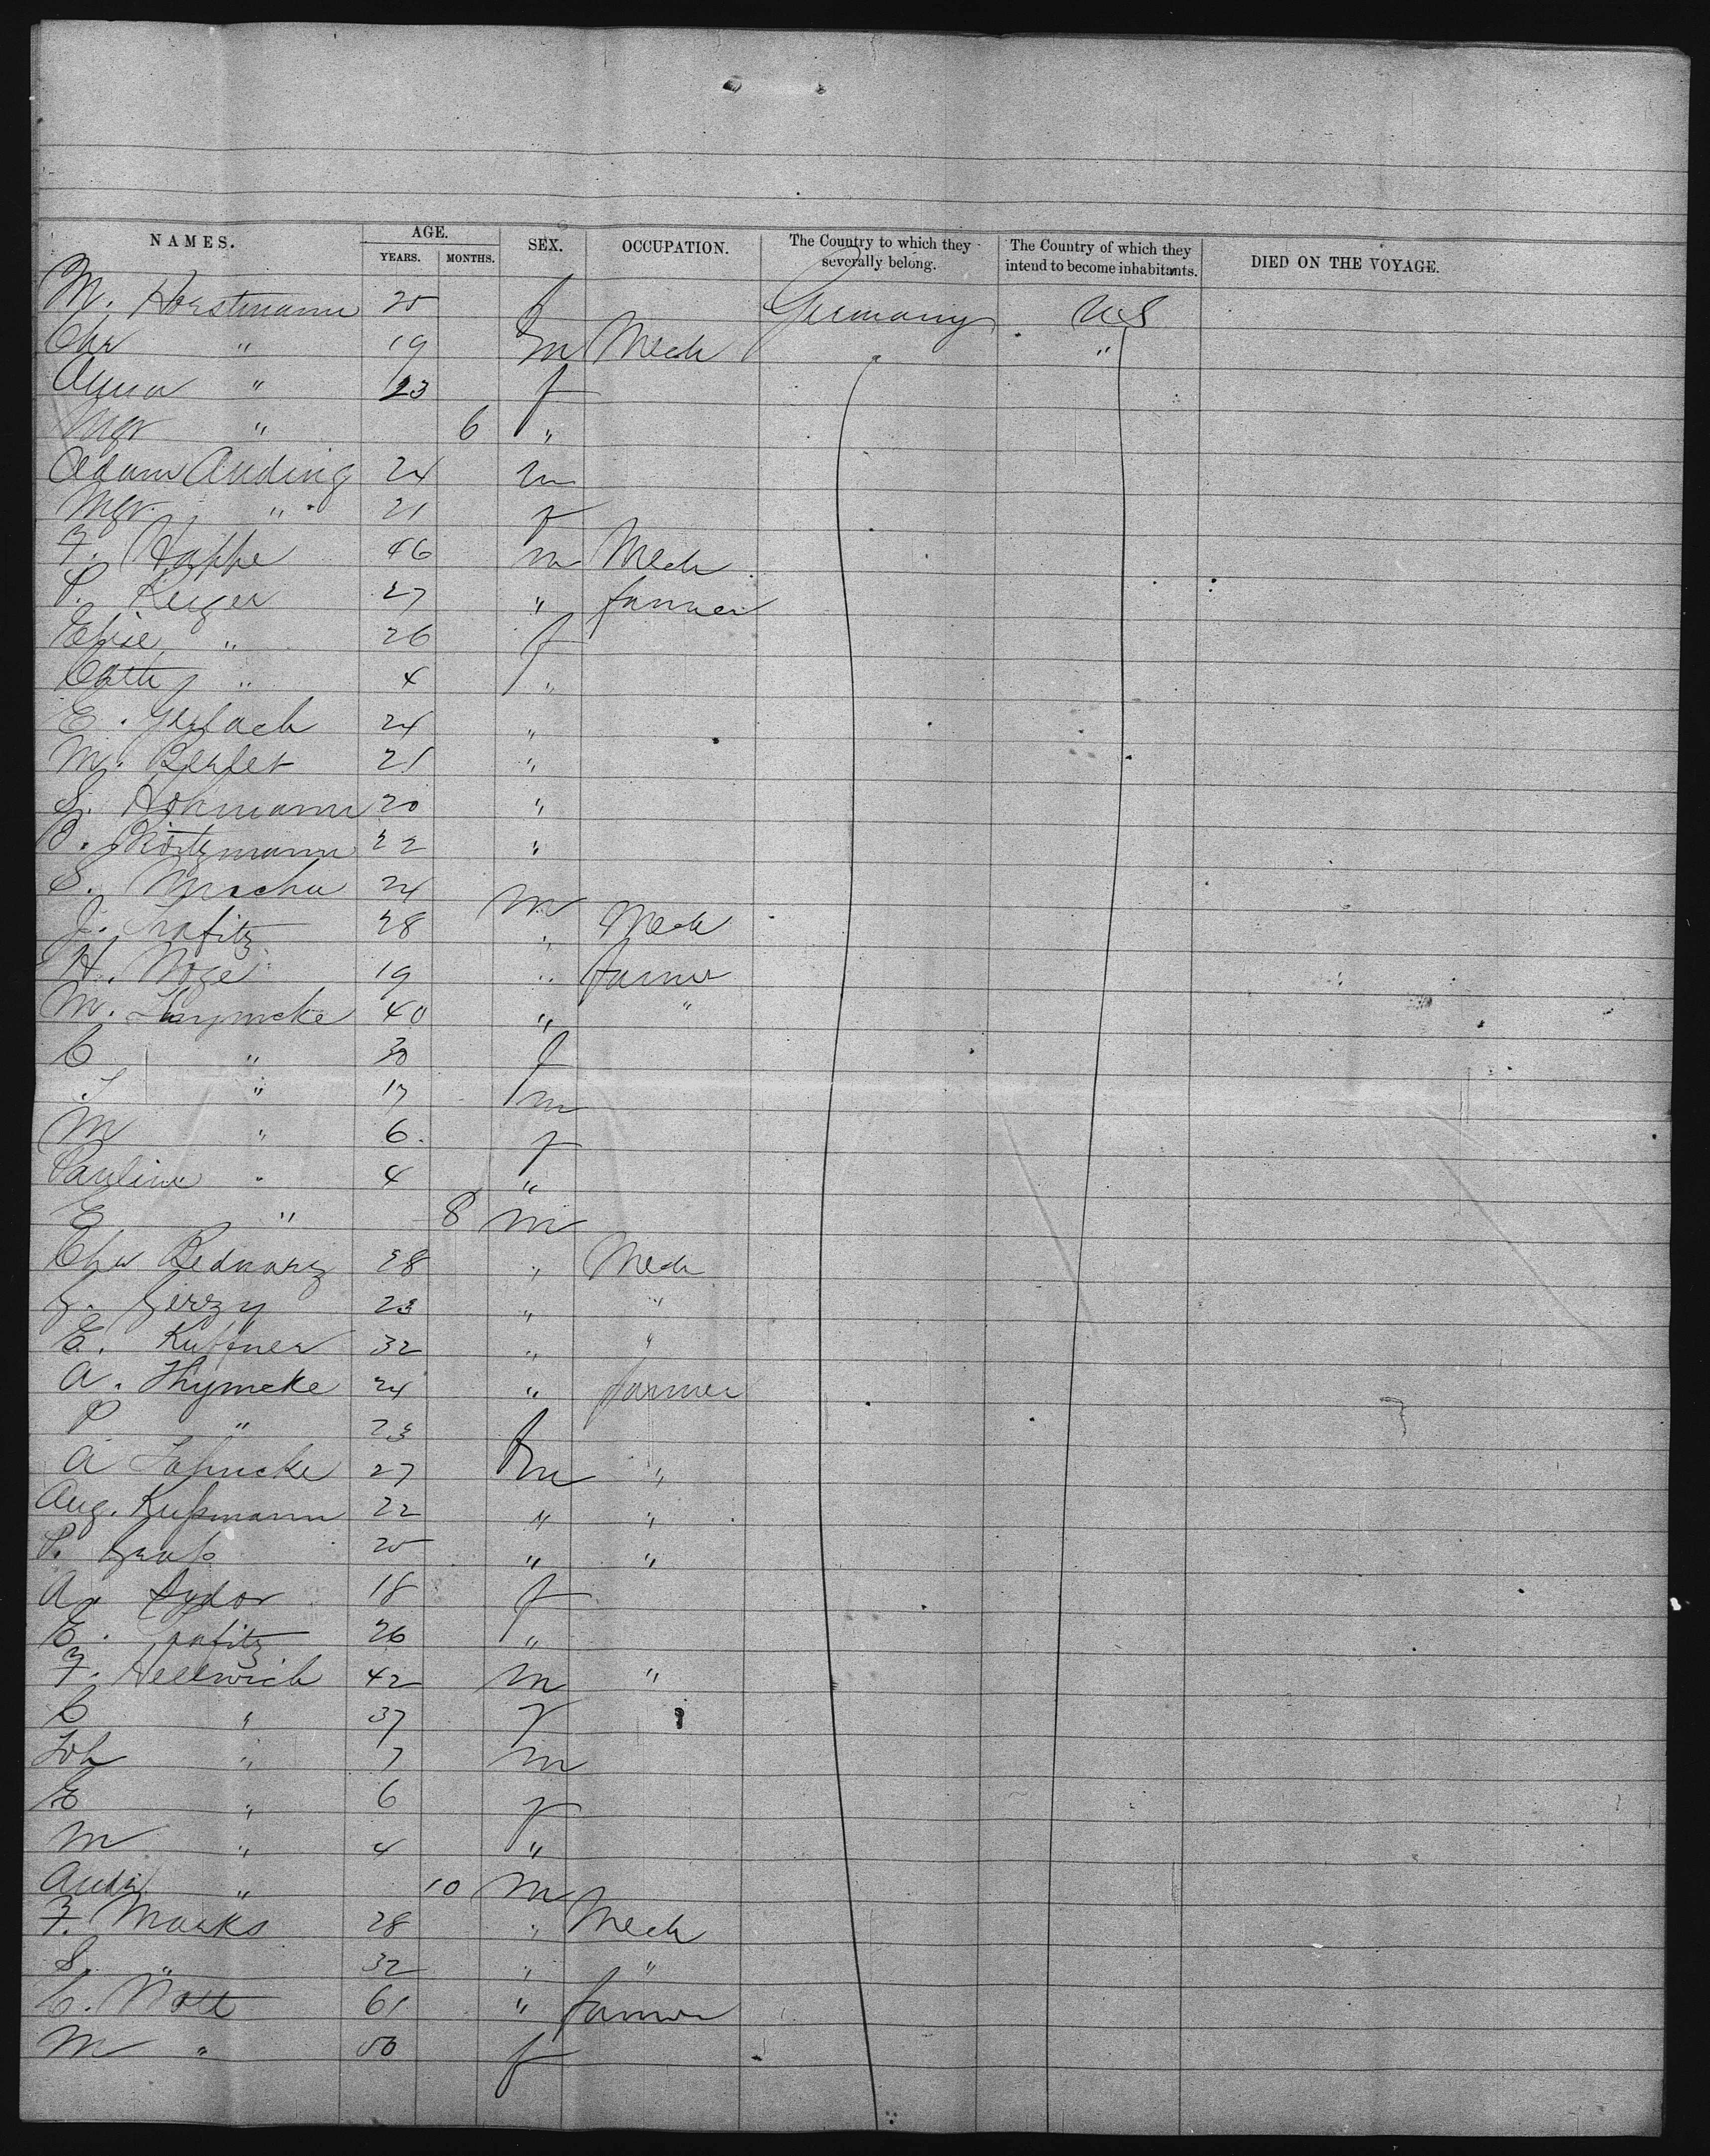 NAMES. AGE. SEX. OCCUPATION. The Country to which they severally belong. The Country of which they intend to become inhabitants. DIED ON THE VOYAGE.
YEARS. MONTHS.
M. Horstmann 20 f Germany U S
Chr " 19 m Mech " "
Anna " 23 f
Mgr " 6 "
Adam Auding 24 m
Mgr " 21 f
F. Happe 46 m Mech
P. Kerger 27 " farmer
Elise " 26 f
Cath " 4 "
E. Gerlach 24 "
M. Berlet 21 "
S. Hohmann 20 "
22 "
S. 24 m
J. 28 " Mech
H. Noze 19 " farmer
M. 40 " "
C " 30 f
" 17 m
M " 6 f
Pauline " 4 "
E " 8 m
Chr Bednarz 28 " Mech
23 " "
E. Kuttner 32 " "
A. Thymcke 24 " farmer
P " 23 f
A 27 m "
Aug. Kußmann 22 " "
20 " "
A. 18 f
E. 26 "
F. Hellwich 42 m "
C " 37 f
Joh " 7 m
E " 6 f
M " 4 "
Andr " 10 m
F. Marks 28 " Mech
S. " 32 " "
C. Nott 61 " farmer
M " 50 f